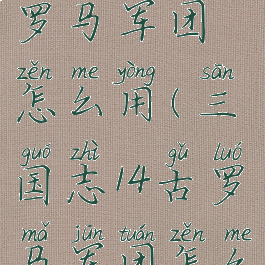 罗马军团
zěn me yòng sān
怎么用(三
guó zhì gǔ luó
国志14古罗
mǎ jūn tuán zěn me
马军团怎么